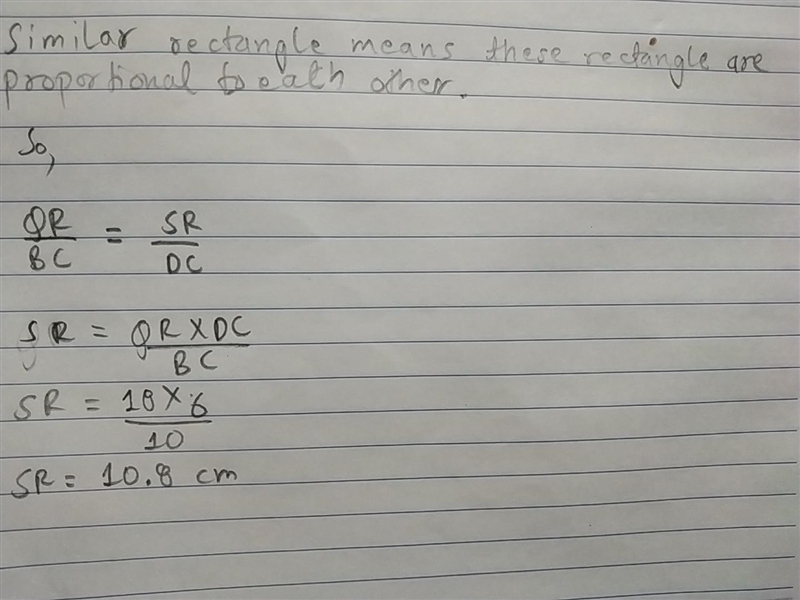 Similar rectangle means these rectangle are
proportional to each other.
So,
QR/BC = SR/DC
SR = QR X DC/BC
SR = 18 X 6/10
SR = 10.8 cm